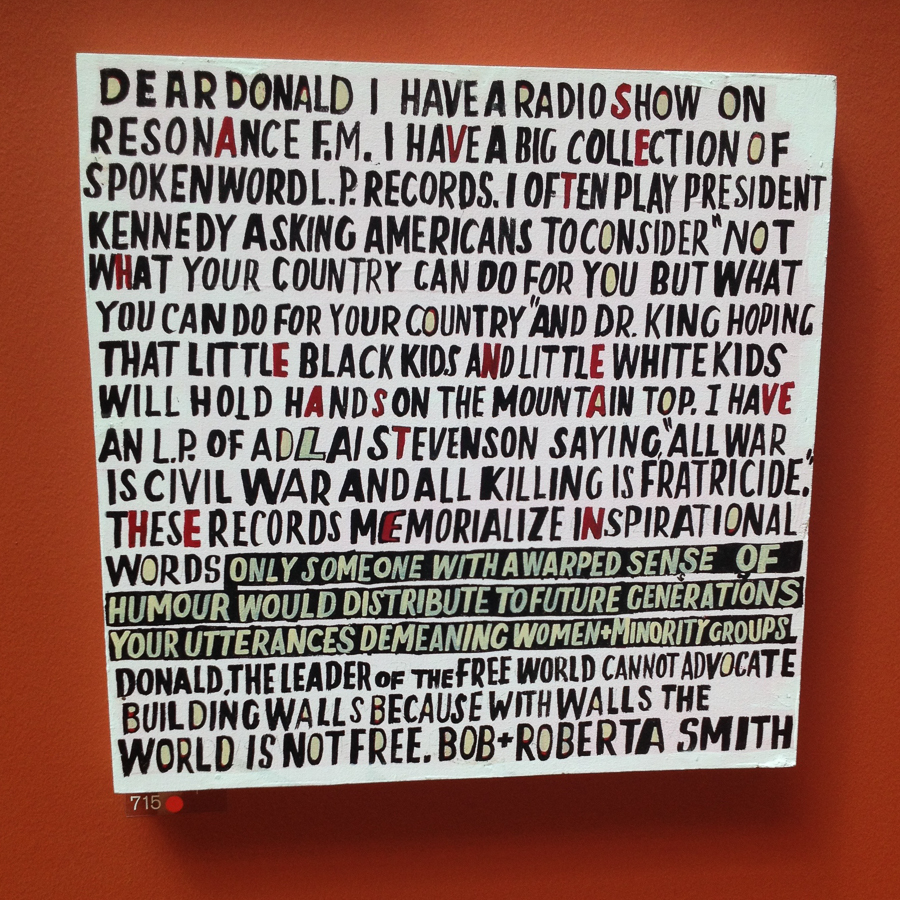 DEAR DONALD I HAVE A RADIO SHOW ON
RESONANCE F.M. I HAVE A BIG COLLECTION OF
SPOKEN WORD L.P. RECORDS. I OFTEN PLAY PRESIDENT
KENNEDY ASKING AMERICANS TO CONSIDER "NOT
WHAT YOUR COUNTRY CAN DO FOR YOU BUT WHAT
YOU CAN DO FOR YOUR COUNTRY" AND DR. KING HOPING
THAT LITTLE BLACK KIDS AND LITTLE WHITE KIDS
WILL HOLD HANDS ON THE MOUNTAIN TOP. I HAVE
AN L.P. OF ADLAI STEVENSON SAYING, "ALL WAR
IS CIVIL WAR AND ALL KILLING IS FRATRICIDE."
THESE RECORDS MEMORIALIZE INSPIRATIONAL
WORDS ONLY SOMEONE WITH A WARPED SENSE OF
HUMOUR WOULD DISTRIBUTE TO FUTURE GENERATIONS
YOUR UTTERANCES DEMEANING WOMEN + MINORITY GROUPS.
DONALD, THE LEADER OF THE FREE WORLD CANNOT ADVOCATE
BUILDING WALLS BECAUSE WITH WALLS THE
WORLD IS NOT FREE. BOB + ROBERTA SMITH
715